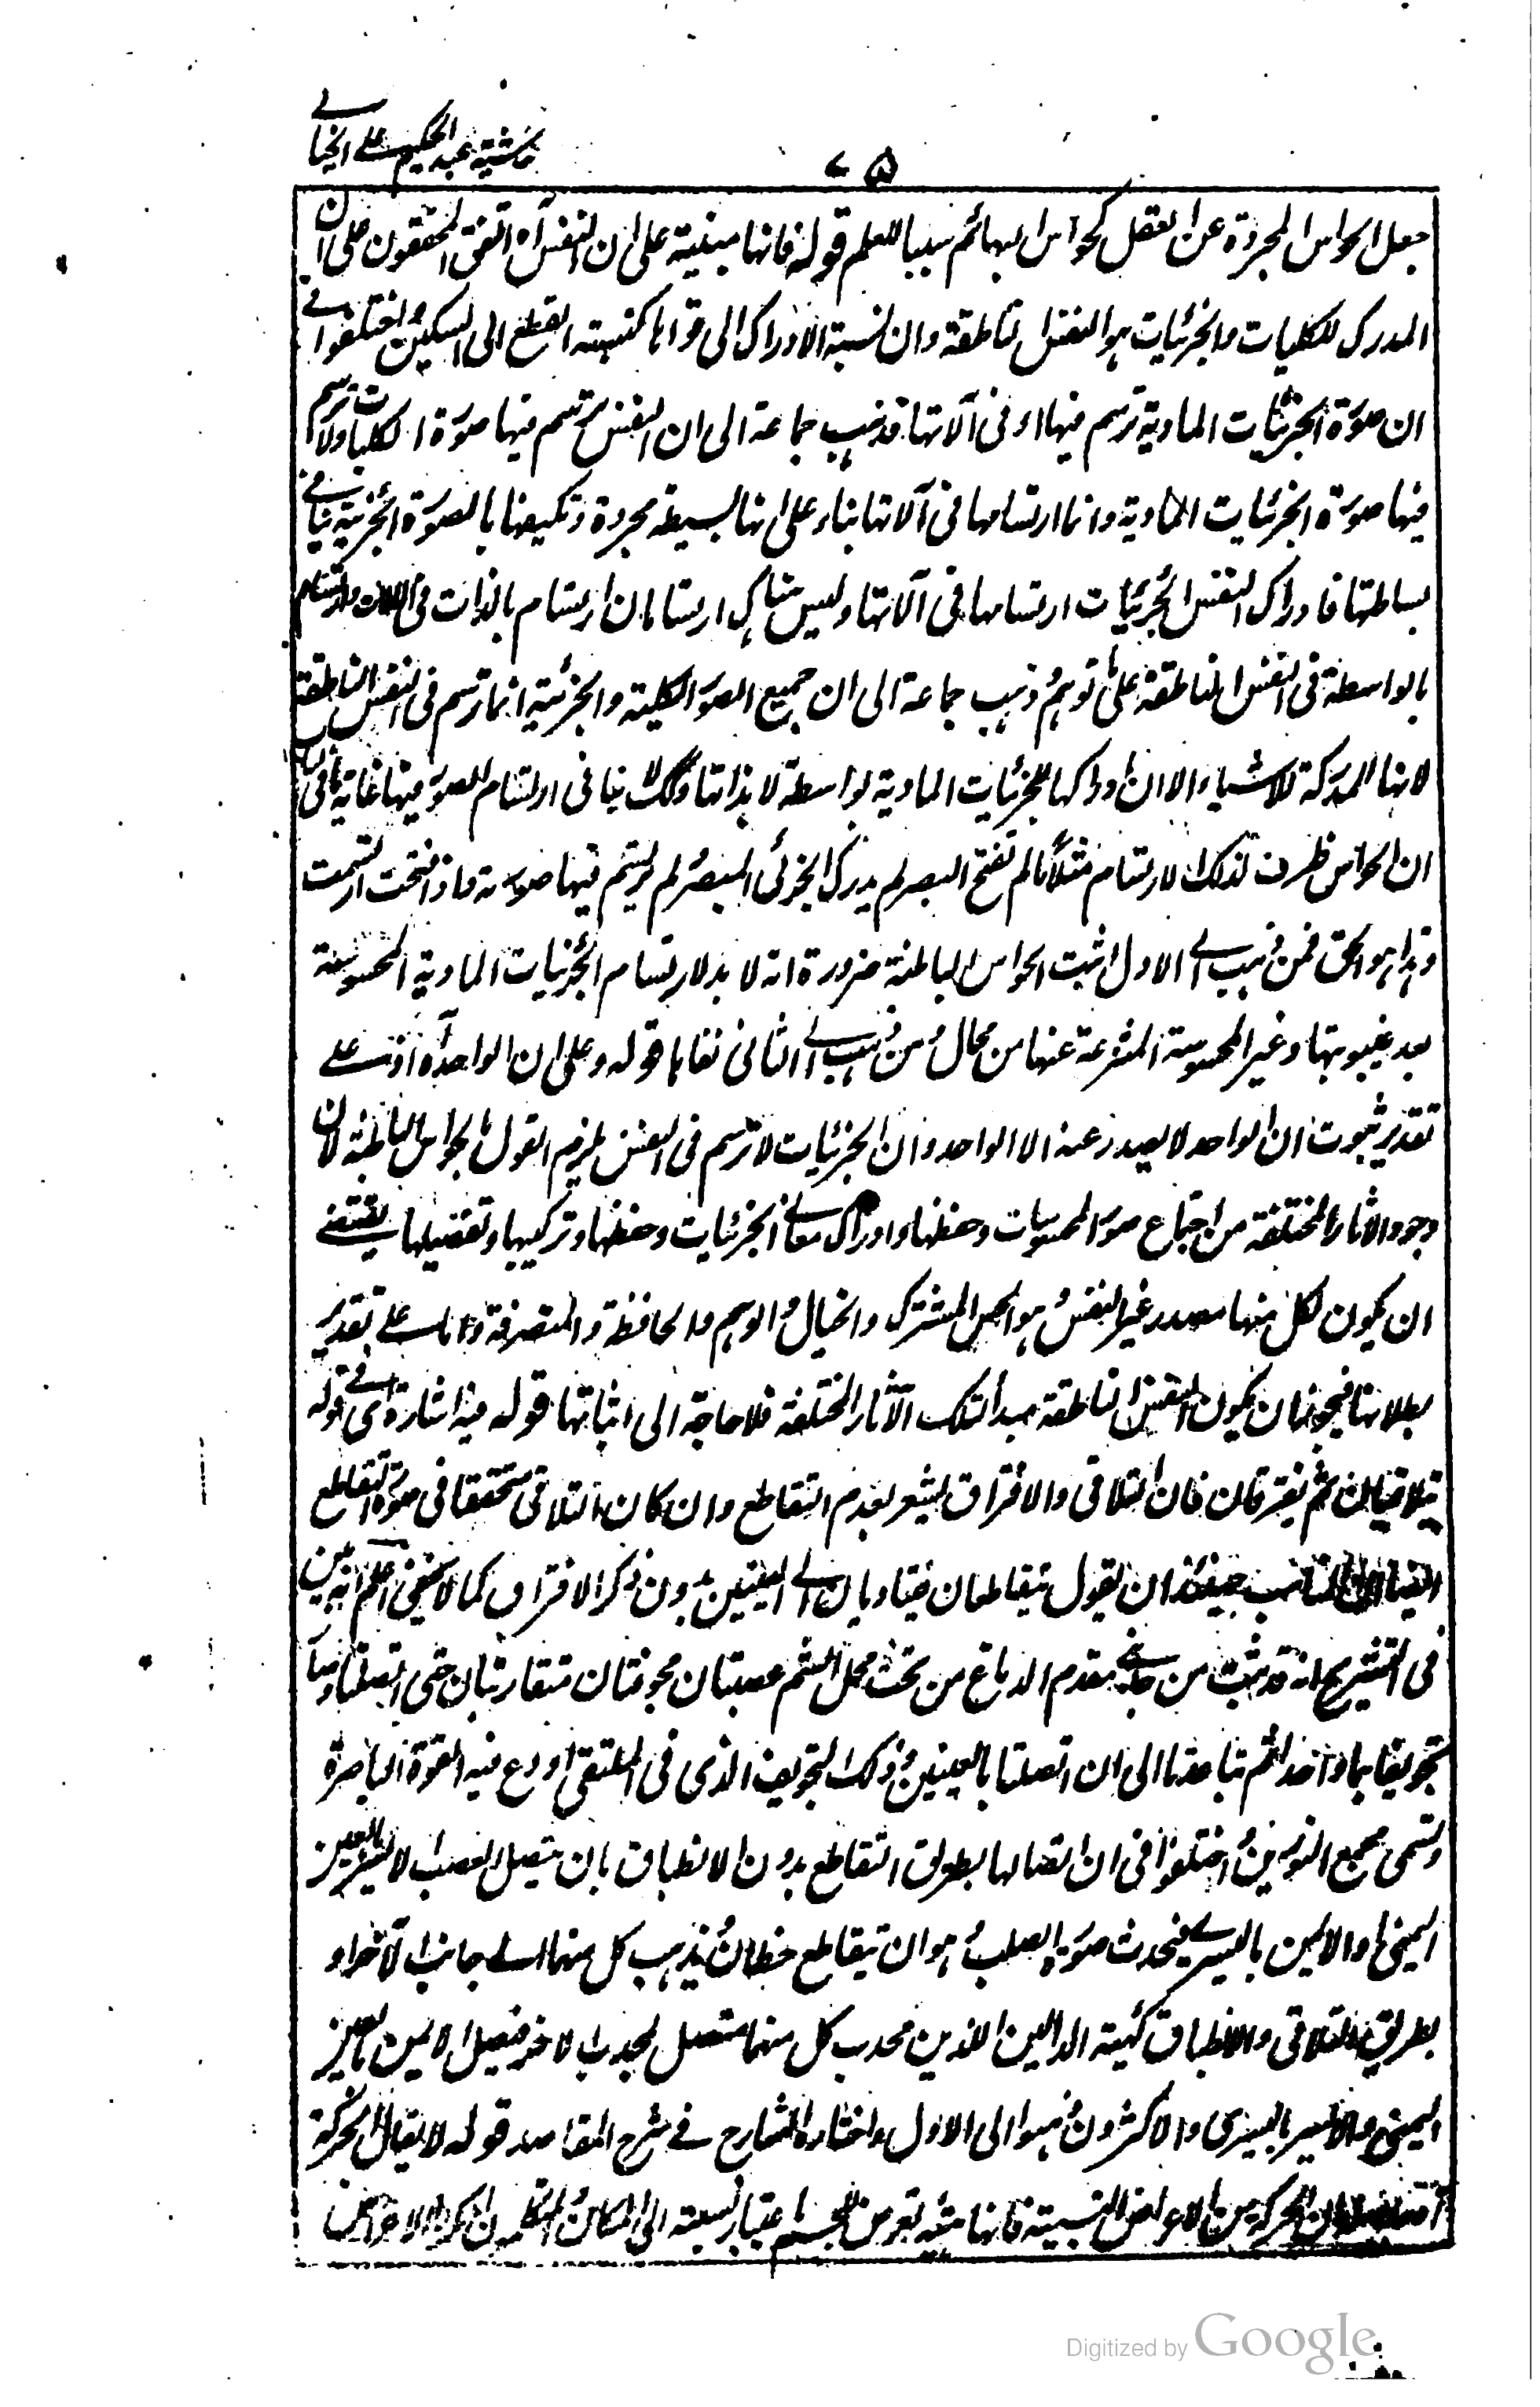 حاشية عبد الحكيم على الخيالي
٥٧
جعل الحواس المجردة عن العقل كحواس البهائم سببا للعلم قوله فانها مبنية على ان النفس آه اتفق المحققون على ان
المدرك للكليات والجزئيات هو النفس الناطقة وان نسبة الادراك الى قواها كنسبته القطع الى السكين واختلفوا في
ان صورة الجزئيات المادية ترتسم فيها او فى آلاتها فذهب جماعة الى ان النفس ترتسم فيها صورة الكليات ولا ترتسم
فيها صورة الجزئيات المادية وانما ارتسامها فى آلاتها بناء على انها بسيطة مجردة وتكيفها بالصورة الجزئية ينافي
بساطتها فادراك النفس الجزئيات ارتسامها فى آلاتها وليس هناك ارتسامان ارتسام بالذات فى الالات وارتسام
بالواسطة فى النفس الناطقة على ما توهم وذهب جماعة الى ان جميع الصور الكلية والجزئية انما ترتسم فى النفس الناطقة
لانها المدركة للاشياء الا ان ادراكها للجزئيات المادية بواسطة لا بذاتها وذلك لا ينافى ارتسام الصور فيها غاية ما فى الباب
ان الحواس ظرف لذلك الارتسام مثلا ما لم تفتح البصر لم يدرك الجزئى المبصر ولم يرتسم فيها صورته واذا فتحت ارتسمت
وهذا هو الحق فمن ذهب الى الاول اثبت الحواس الباطنة ضرورة انه لا بد لارتسام الجزئيات المادية المحسوسة
بعد غيبوبتها وغير المحسوسة المنتزعة عنها من محال ومن ذهب الى الثانى نفاها قوله وعلى ان الواحد آه اذ على
تقدير ثبوت ان الواحد لا يصدر عنه الا الواحد وان الجزئيات لا ترتسم فى النفس يلزم القول بالحواس الباطنة لان
وجود الاثار المختلفة من اجتماع صور المحسوسات وحفظها وادراك معانى الجزئيات وحفظها وتركيبها وتفصيلها يقتضي
ان يكون لكل منها مصدر غير النفس هو الحس المشترك والخيال والوهم والحافظة والمتصرفة واما على تقدير
بطلانها فيجوز ان يكون النفس الناطقة مبدأ لتلك الآثار المختلفة فلا حاجة الى اثباتها قوله فيه اشارة اى فى قوله
يتلاقيان ثم يفترقان فان التلاقى والافتراق يشعر بعدم التقاطع وان كان التلاقى متحققا فى صورة التقاطع
ايضا اذ المناسب حينئذ ان يقول يتقاطعان فيتاديان الى العينين بدون ذكر الافتراق كما لا يخفى اعلم انه تبين
فى التشريح انه قد نبت من جانبى مقدم الدماغ من تحت محل الشم عصبتان مجوفتان متقاربتان حتى اتصلتا وصار
تجويفاهما واحدا ثم تباعدتا الى ان اتصلتا بالعينين وذلك التجويف الذى فى الملتقى اودع فيه القوة الباصرة
وتسمى مجمع النورين واختلفوا فى ان اتصالها بطريق التقاطع بدون الانطباق بان يتصل العصب الايسر بالعين
اليمنى والايمن باليسرى فيحدث صورة الصليب وهو ان يتقاطع خطان ويذهب كل منهما الى جانب الآخر او
بطريق التلاقى والانطباق كهيئة الدالين اللذين محدب كل منهما متصل بمحدب الاخر فيتصل الايمن بالعين
اليمنى والايسر باليسرى والاكثرون ذهبوا الى الاول واختاره الشارح فى شرح المقاصد قوله لا يقال الحركة
ان الحركة من الاعراض النسبية فانها هيئة تعرض للجسم باعتبار نسبته الى المكان والمتكلمون انكروا الاعراض
Digitized by Google